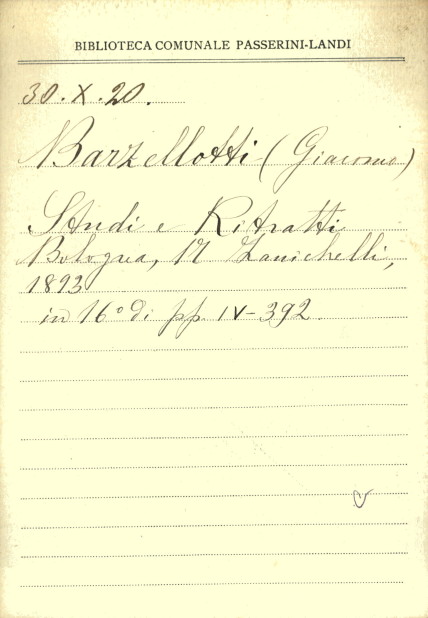 BIBLIOTECA COMUNALE PASSERINI-LANDI
30.X.20.
Barzellotti (Giacomo)
Studi e Ritratti
Bologna, N Zanichelli,
1893
in 16° di pp. IV-392.